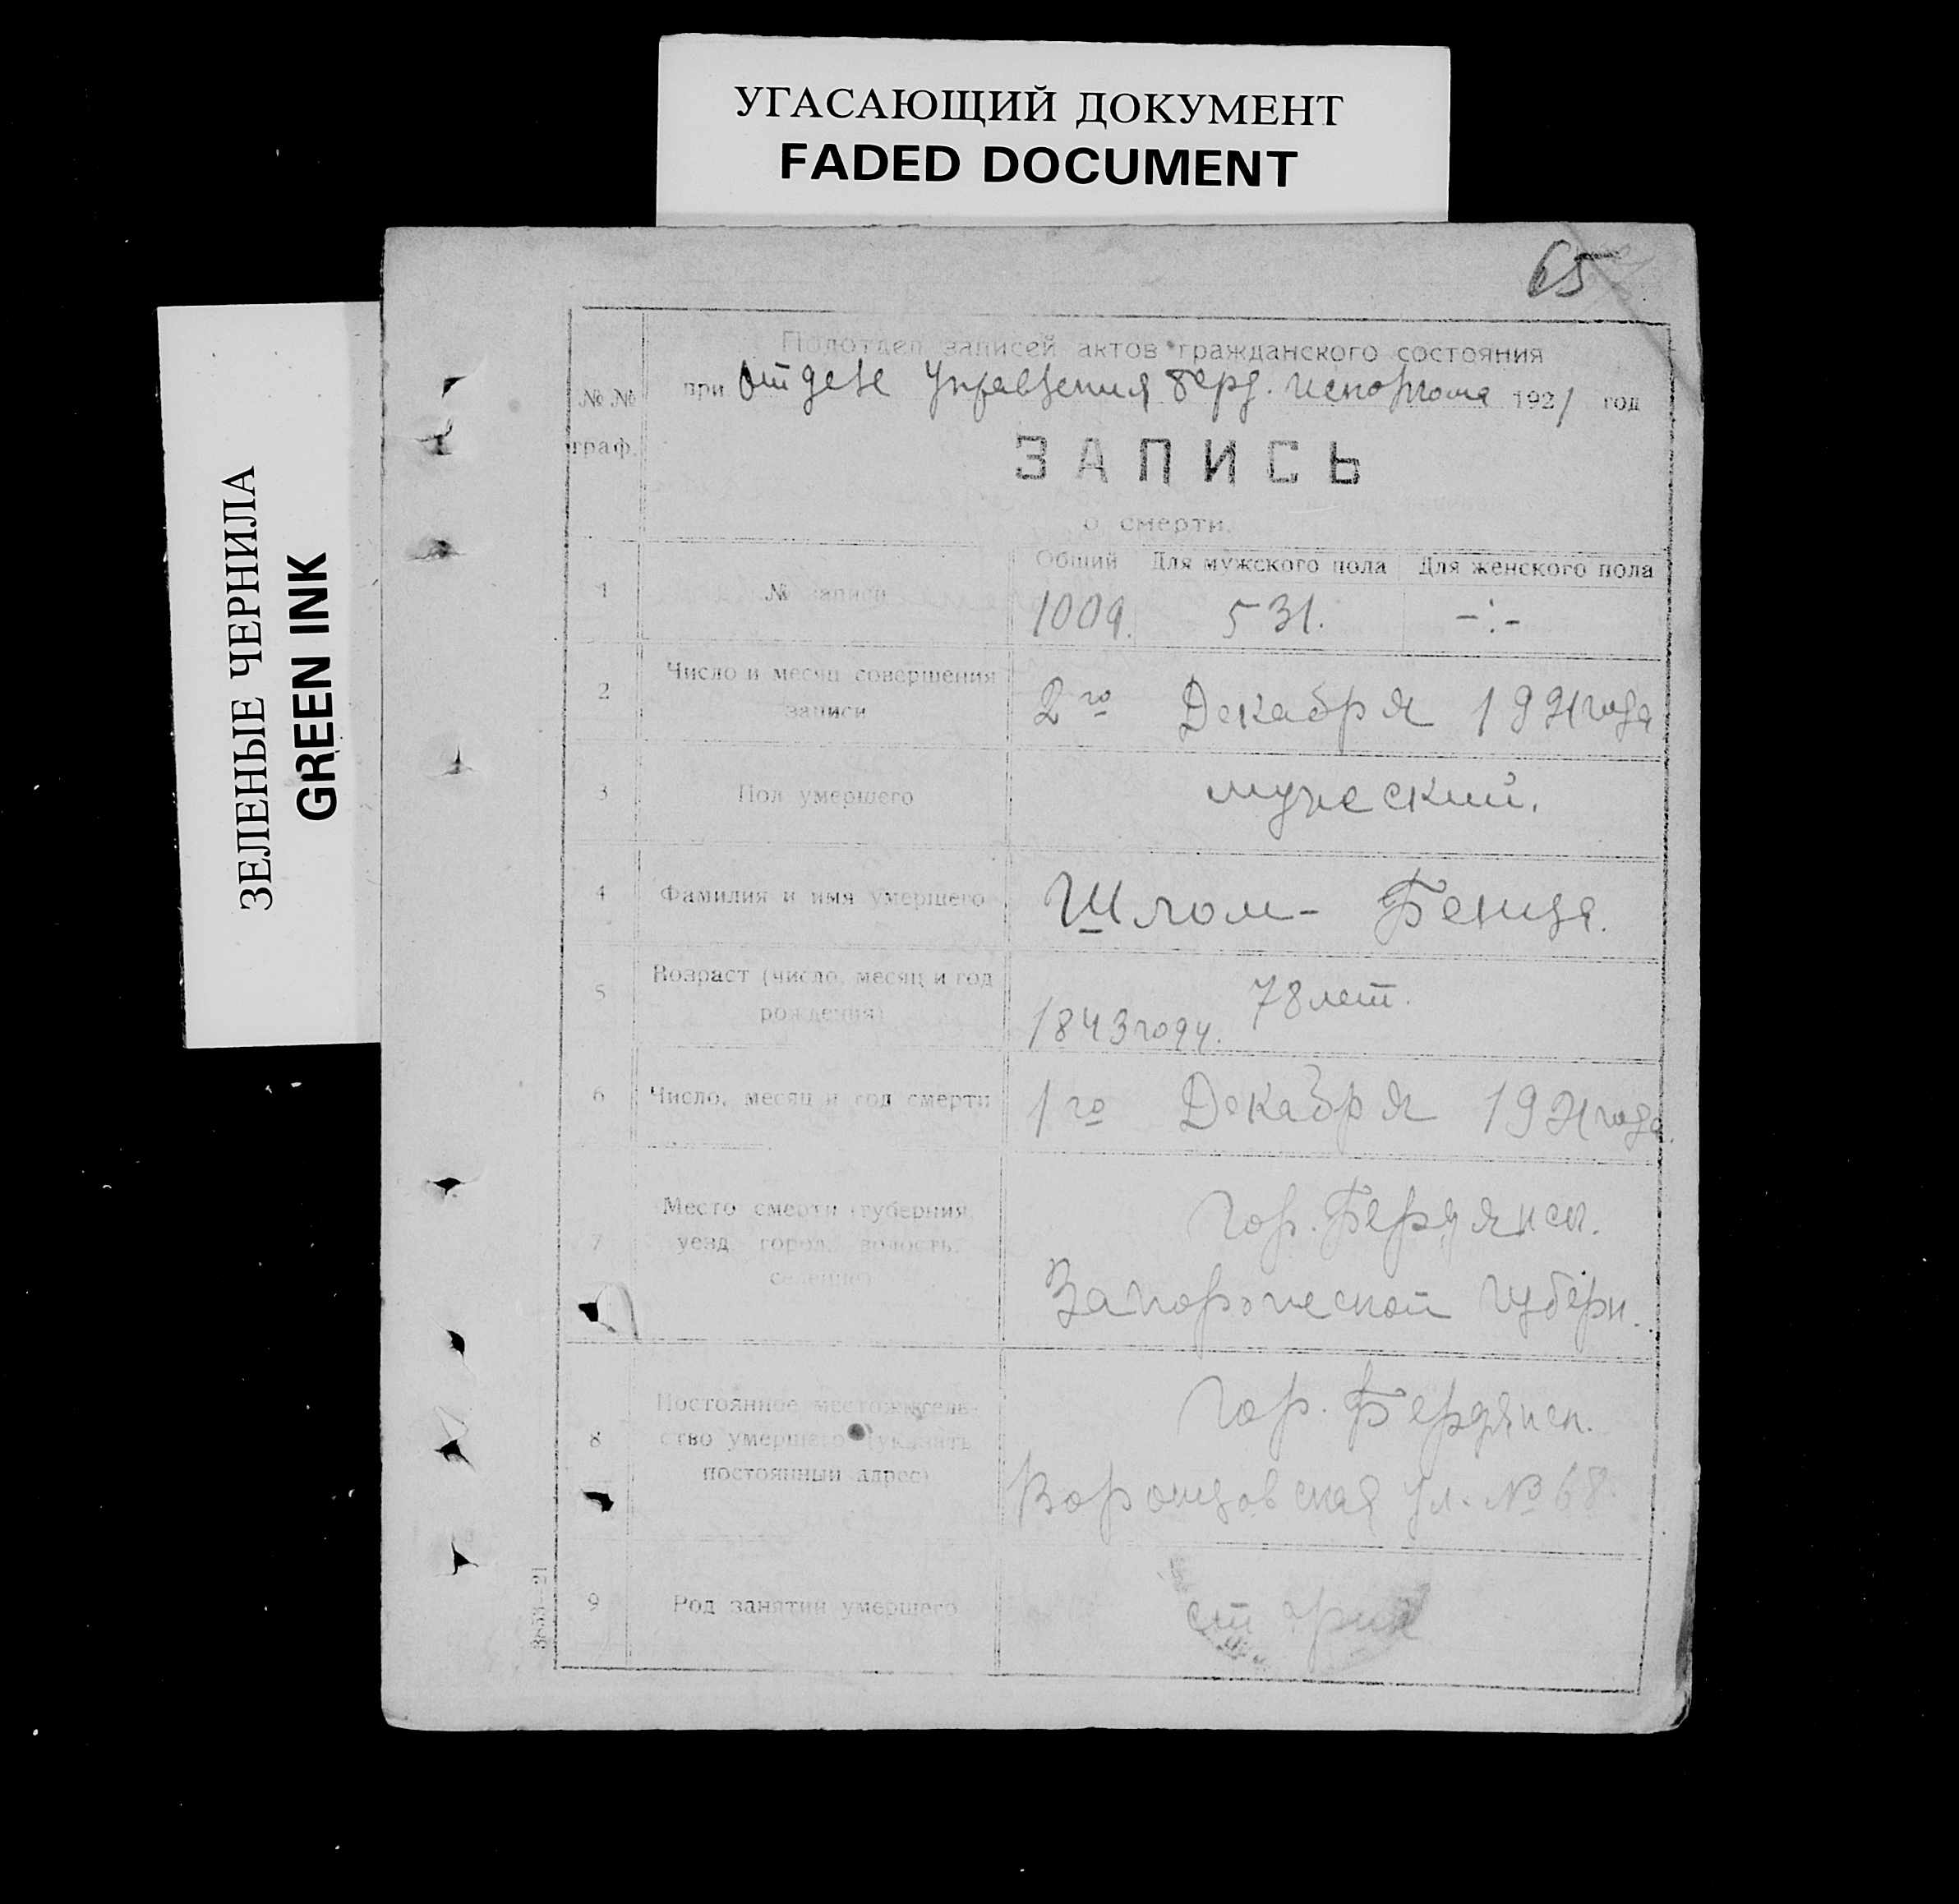 УГАСАЮЩИЙ ДОКУМЕНТ
FADED DOCUMENT
ЗЕЛЕНЫЕ ЧЕРНИЛА
GREEN INK
65
№ № граф.
Подотдел записей актов гражданского состояния
при Отделе Управления Берд. 1921 год
ЗАПИСЬ
о смерти.
Общий Для мужского пола Для женского пола
1 № записи 1009. 531. -:-
2 Число и месяц совершения
записи
2го Декабря 1921 года
3 Пол умершего мужеский.
4 Фамилия и имя умершего Шлом- Бенця.
5 Возраст (число, месяц и год
рождения)
78 лет.
1843 году.
6 Число, месяц и год смерти 1го Декабря 1921 года.
7 Место смерти (губерния,
уезд, город, волость,
селение)
гор. Бердянск.
Запорожеской губерн.
8 Постоянное местожитель-
ство умершего (указать
постоянный адрес)
гор. Бердянск.
Воронцовская ул. № 68.
9 Род занятий умершего